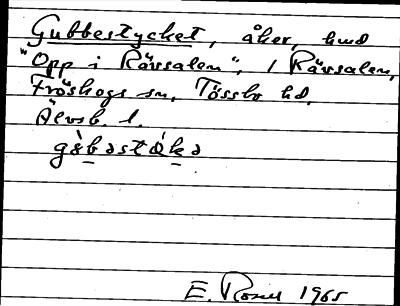 Gubbestycket, åker, hmd
"Opp i Rävsalen", 1 Rävsalen,
Fröskogs sn, Tössbo hd,
Älvsb. l.
E. Rosell 1965